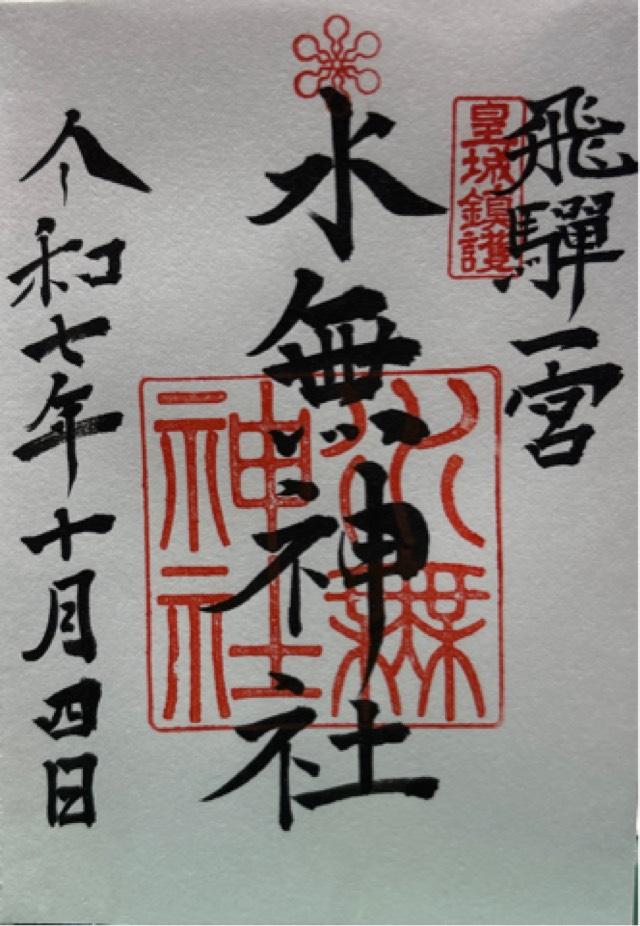 飛騨一宮
皇城鎮護
水無神社
水無神社
令和七年十月四日